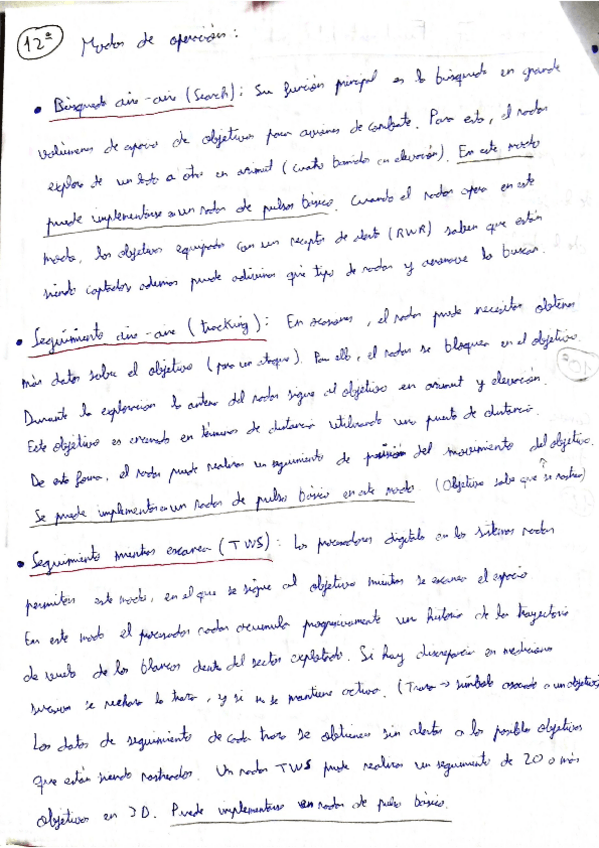 12ª Modos de operación:
• Búsqueda aire-aire (Search): Su función principal es la búsqueda en grande
volúmenes de espacio de objetivos para aviones de combate. Para esto, el radar
explora de un lado a otro en azimut (cuatro barridos en elevación). En este modo
puede implementarse en un radar de pulsos básico. Cuando el radar opera en este
modo, los objetivos equipados con un receptor de alerta (RWR) saben que están
siendo captados, además puede adivinar que tipo de radar y aeronave lo buscan.
• Seguimiento aire-aire (tracking): En ocasiones, el radar puede necesitar obtener
más datos sobre el objetivo (para un ataque). Para ello, el radar se bloquea en el objetivo.
Durante la exploración la antena del radar sigue al objetivo en azimut y elevación.
Este objetivo es en términos de distancia utilizando una puerta de distancia.
De esta forma, el radar puede realizar un seguimiento de del movimiento del objetivo.
Se puede implementar en un radar de pulso básico en este modo. (Objetivo sabe que se rastrea)
• Seguimiento mientras escanea (TWS): Los procesadores digitales en los sistemas radar
permiten este modo, en el que se sigue al objetivo mientras se escanea el espacio
En este modo el procesador radar acumula progresivamente un historial de la trayectoria
de vuelo de los blancos dentro del sector explorado. Si hay discrepancia en mediciones
sucesivas se rechaza la traza, y si no se mantiene activa. (Traza → símbolo asociado a un objetivo)
Los datos de seguimiento de cada traza se obtienen sin alertar a los posibles objetivos
que están siendo rastreados. Un radar TWS puede realizar un seguimiento de 20 o más
objetivos en 3D. Puede implementarse en radar de pulso básico.